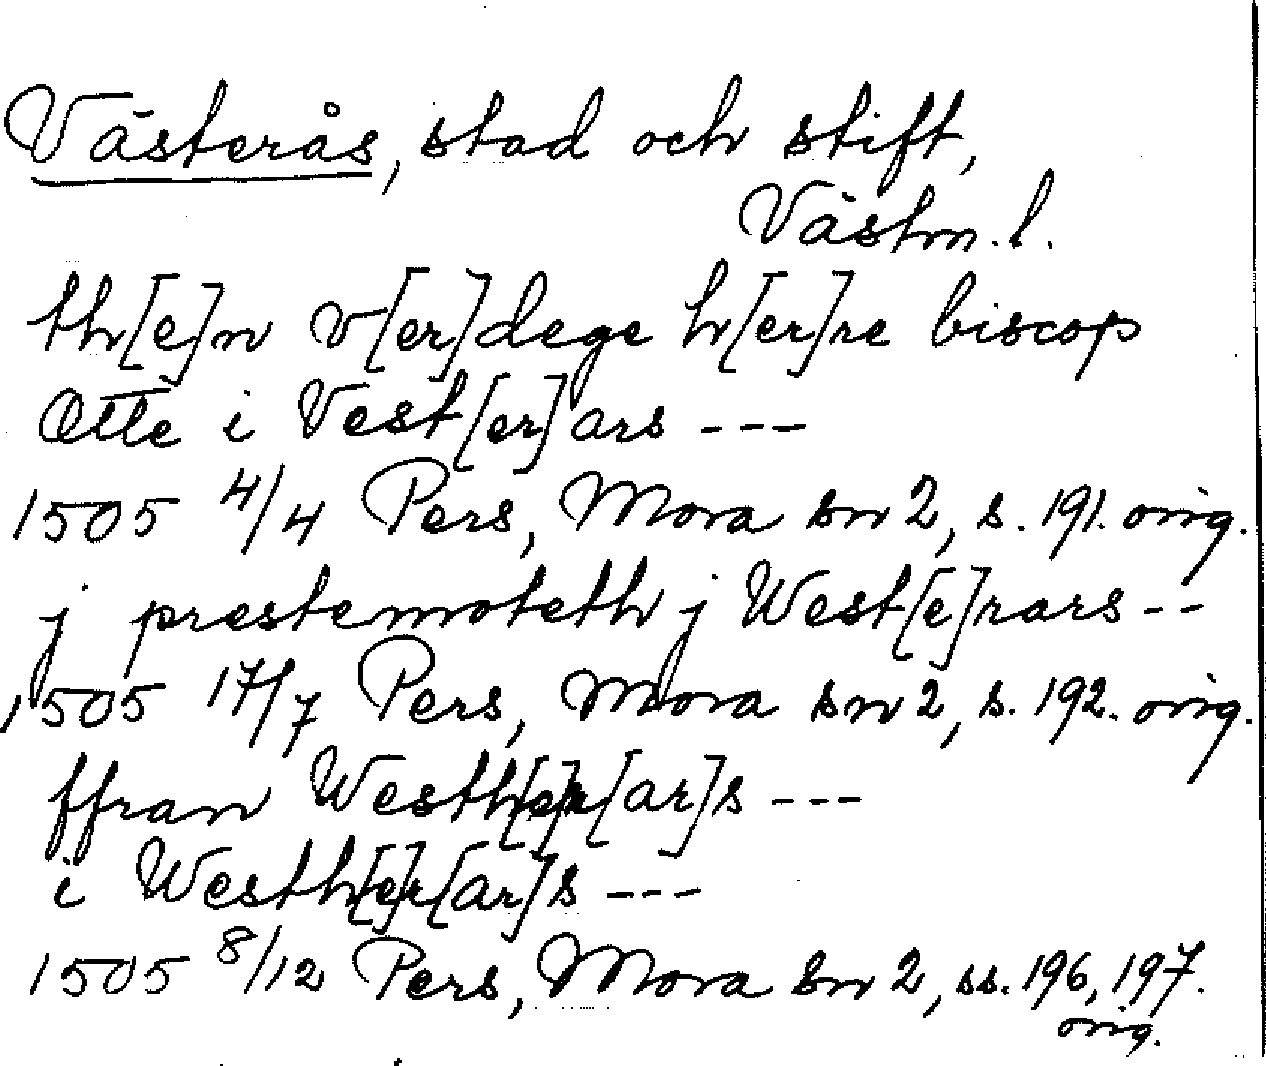 Västerås, stad och stift,
Västm. l.
th[e]n v[er]dege h[er]re biscop
Otte i Vest[er]ars ---
1505 4/4 Pers, Mora sn 2, s. 191. orig.
j prestemoteth j West[e]rars --
1505 17/7 Pers, Mora sn 2, s. 192. orig.
ffran Westh[e]r[ar]s ---
i Westh[e]r[ar]s ---
1505 8/12 Pers, Mora sn 2, ss. 196, 197.
orig.